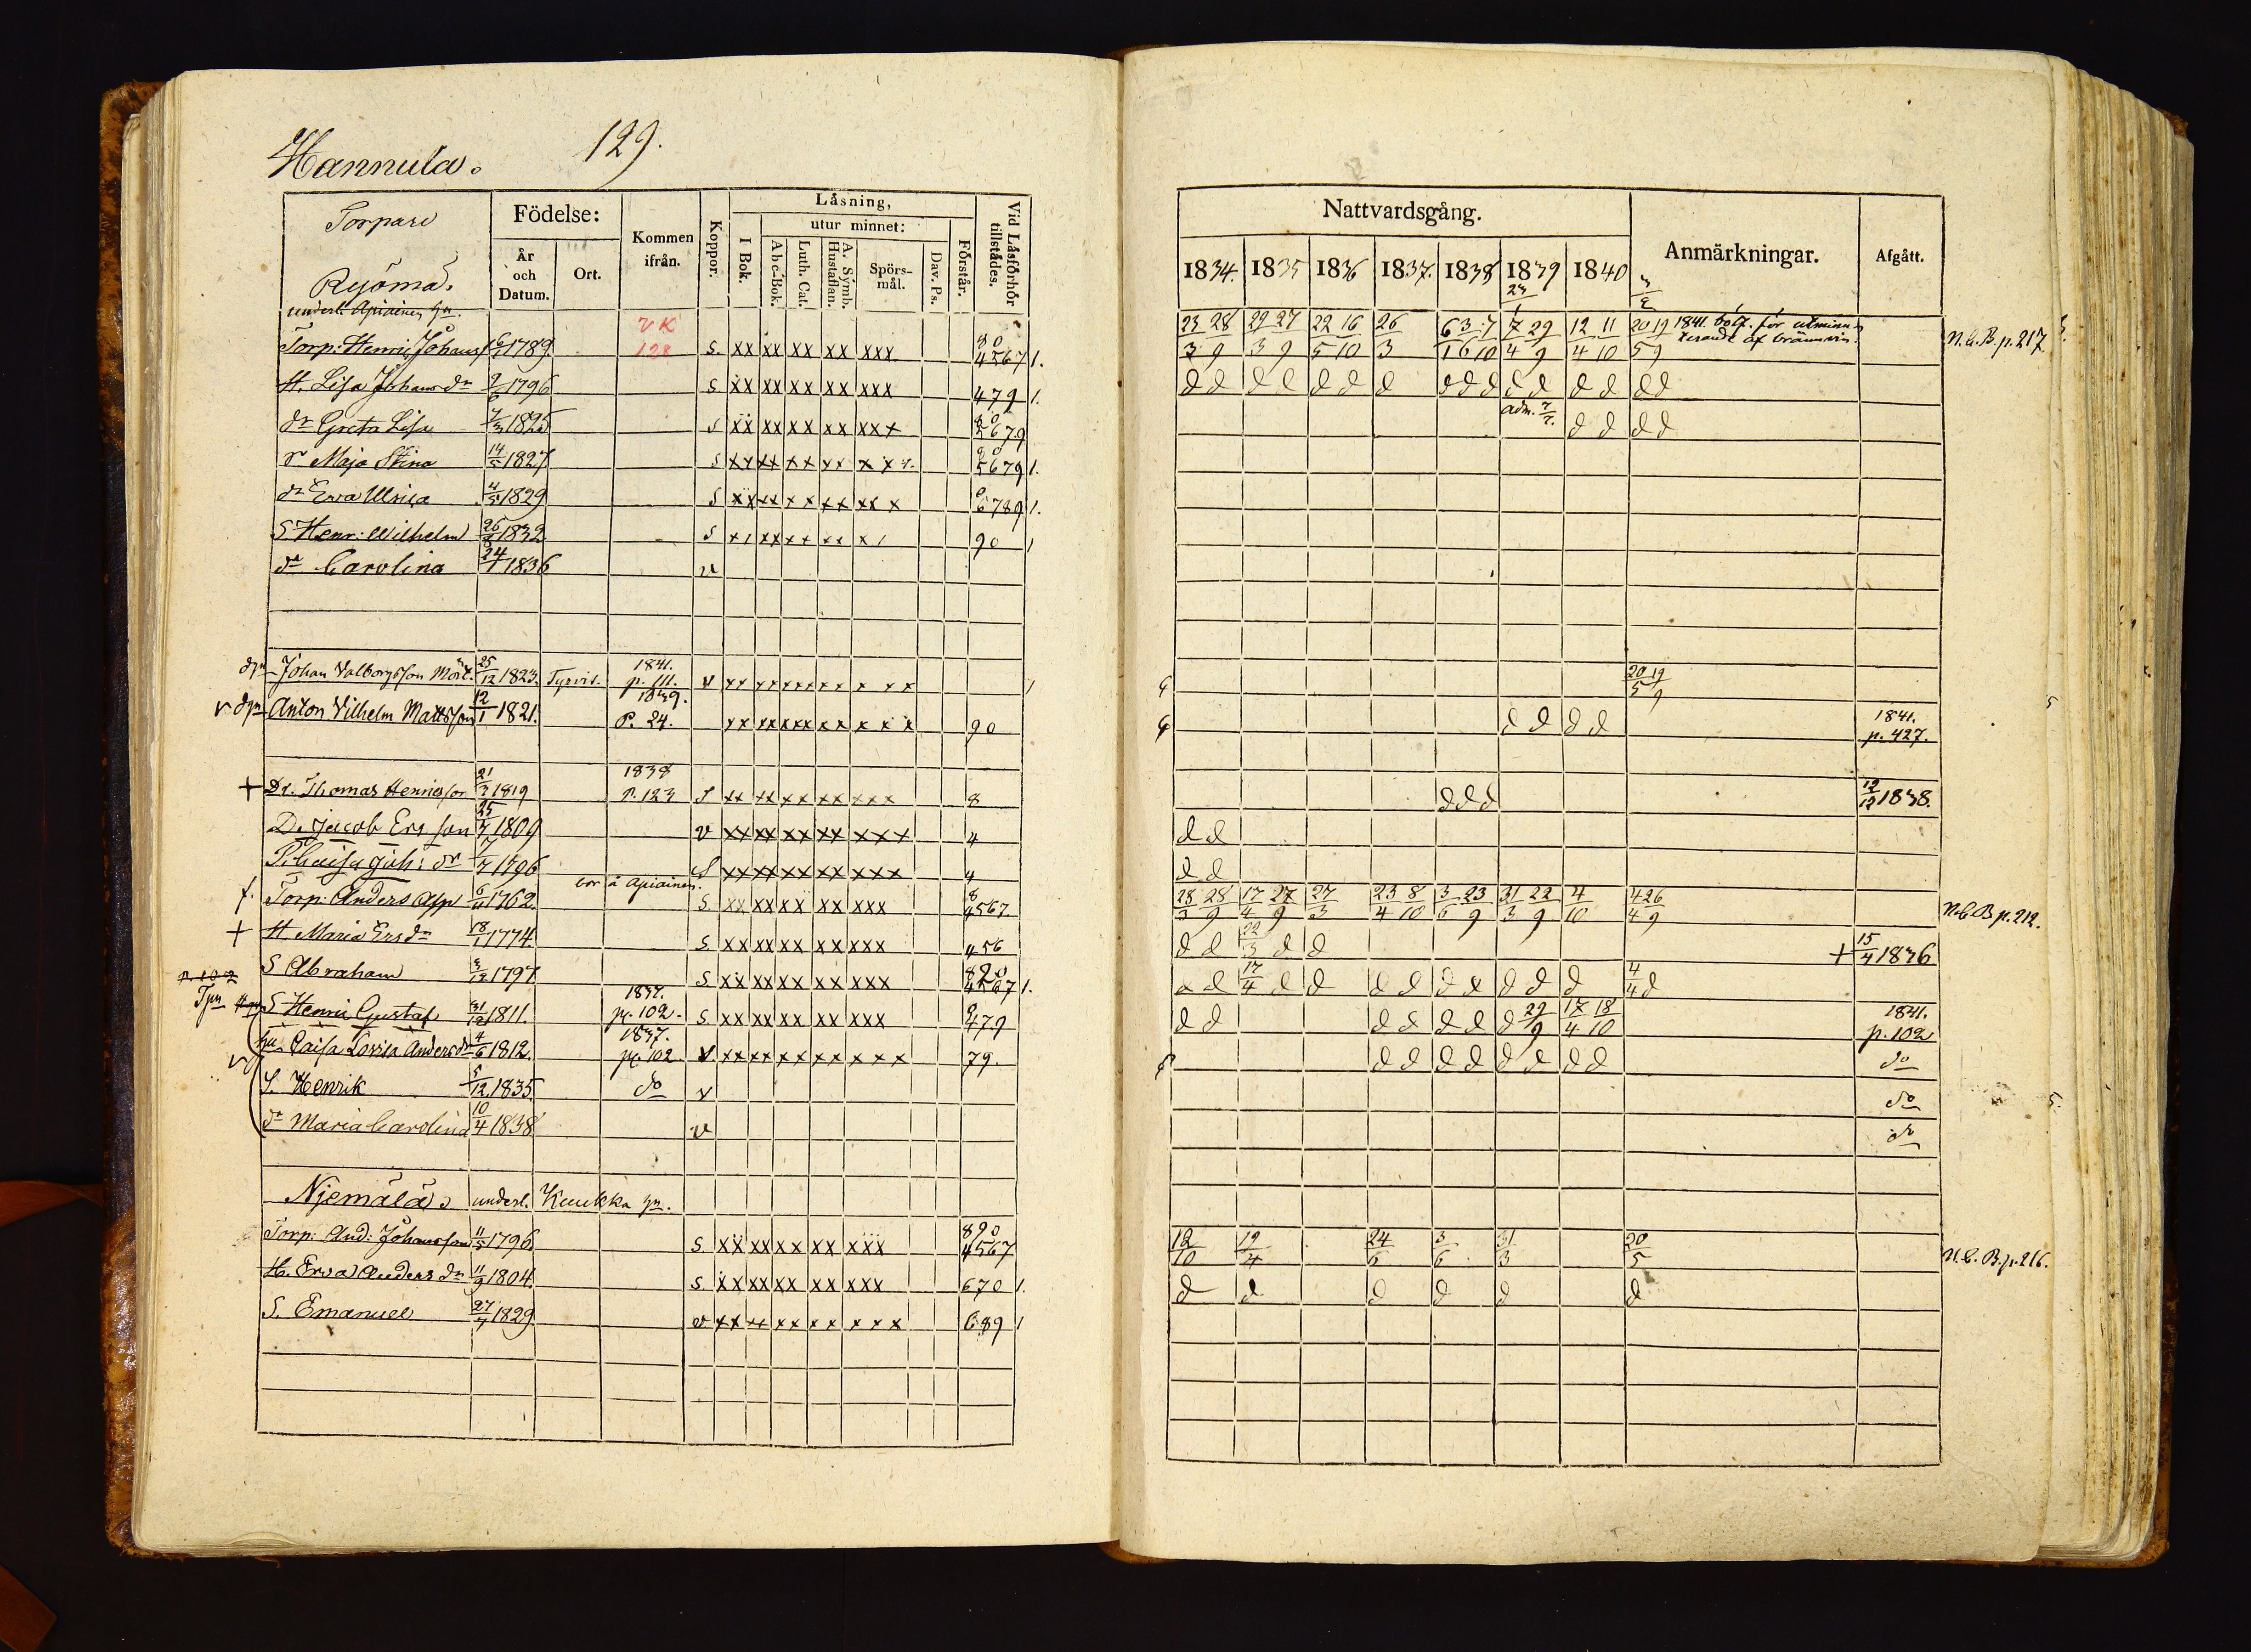 Hannula.
129.
Torpare
Födelse:
Kommen ifrån.
Koppor.
Läsning,
utur minnet:
I Bok.
Abc-Bok.
Luth. Cat.
A. Symb. Hustaflan.
Spörsmål.
Dav. Ps.
Förstår.
Vid Läsförhör tillstädes.
År och Datum.
Ort.
Ryömä.
underl. Apiainen hn.
VK
128
Torp: Henric Johanss 6/1 1789 S. xx xx xx xx xxx 80 4567 1.
H. Lisa Johansdr 9/6 1796 S xx xx xx xx xxx 479 1.
dr Greta Lisa 7/3 1825 S xx xx xx xx xxx 80 5679
dr Maja Stina 14/5 1827 S xx xx xx xx 5679 1.
dr Eva Ulrica 4/5 1829 S xx xx xx xx xxx 0 6789 1.
S Henr: Wilhelm 26/8 1832 S 90 1
dr Carolina 24/1 1836 v
Johan Valborgsson 25/12 1823. Tyrvis. 1841. p. 111. v xx xx xx xx x x x 1
v Anton Vilhelm Mattsson 12/1 1821. 1839. P. 24. xx xx xx xx x x x 90
+ Dr. Thomas Henricsson 21/3 1819 1838 p. 123 S xx xx xx xx xxx 8
D. Jacob Ersson 1809 v xx xx xx xx xxx 4
P. Caisa Joh: dr 1796 S xx xx xx xx xxx 4
bor å Apiainen.
Torp: Anders Asp 6/11 1762. S. xx xx xx xx xxx 8 4567
+ H. Maria Ersdr 18/1 1774. S. xx xx xx xx xxx 456
S Abraham 3/12 1797 S xx xx xx xx xxx 4567 1.
p. 102
S Henric Gustaf 31/12 1811. 1837. p. 102. S. xx xx xx xx xxx 479
hu Caisa Lovisa Andersdr 4/6 1812. 1837. p. 102 v xx xx xx xx xxx 79.
S. Henrik 5/12 1835. do v
dr Maria Carolina 10/4 1838 v
Njemälä. underl. Kuukka hn.
Torp: And: Johansson 11/5 1796 S xx xx xx xx xxx 890 4567
H. Eva Anders dr 11/9 1804. S. xx xx xx xx xxx 670 1.
S. Emanuel 27/7 1829 v xx xx xx xx xxx 689 1
Nattvardsgång.
Anmärkningar.
Afgått.
1834. 1835 1836 1837. 1838 1839 1840
23/3 28/9 29/3 27/9 22/5 16/10 26/3 7/4 29/9 12/4 11/10 20/5 19/9 1841. böt. för utminuterande af brännvin. N.C.B. p. 217.
d d d d d d d d d d d d d d d d
adm. d d d d
20/5 19/9
d d d d 1841. p. 427.
d d d 12/12 1838.
d d
d d
23/3 28/9 17/4 27/9 27/3 23/4 8/10 3/6 23/9 31/3 22/9 4/10 4/4 26/9 N.C.B p. 212.
d d 22/3 d d + 15/4 1836
d d 17/4 d d d d d d d d d 4/4 d
d d d d d d d 29/9 17/4 18/10 1841. p. 102
d d d d d d d d do
do
do
12/10 19/4 24/6 3/6 31/3 20/5 N.C.B. p. 216.
d d d d d d